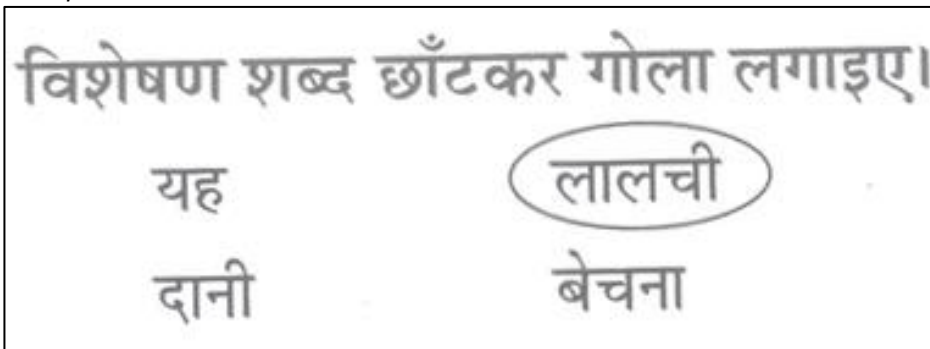 विशेषण शब्द छाँटकर गोला लगाइए।
यह लालची
दानी बेचना